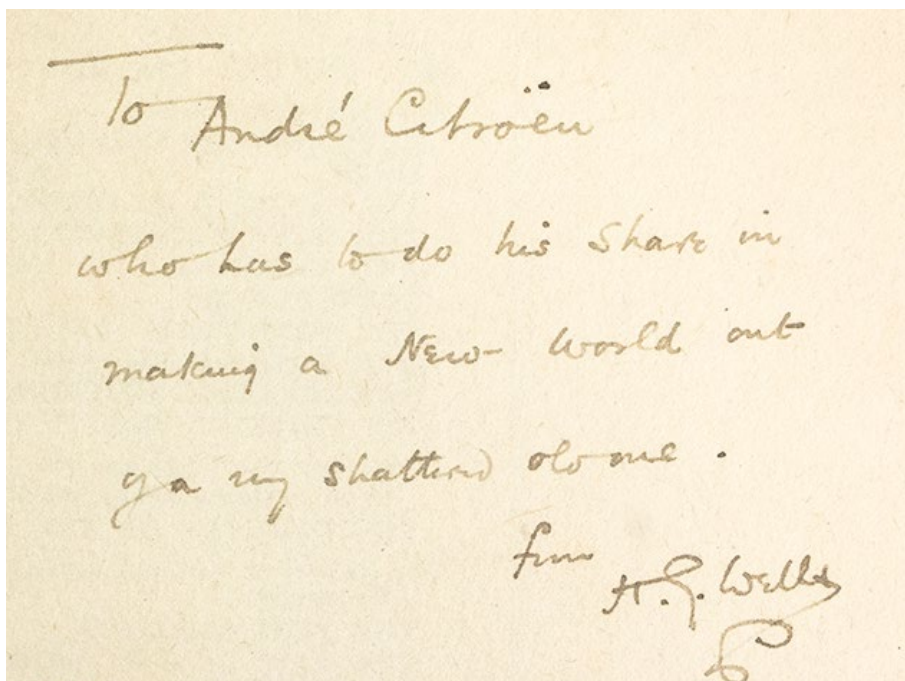 To André Citroën
who has to do his share in
making a New World out
of a very shattered old one.
from H. G. Wells